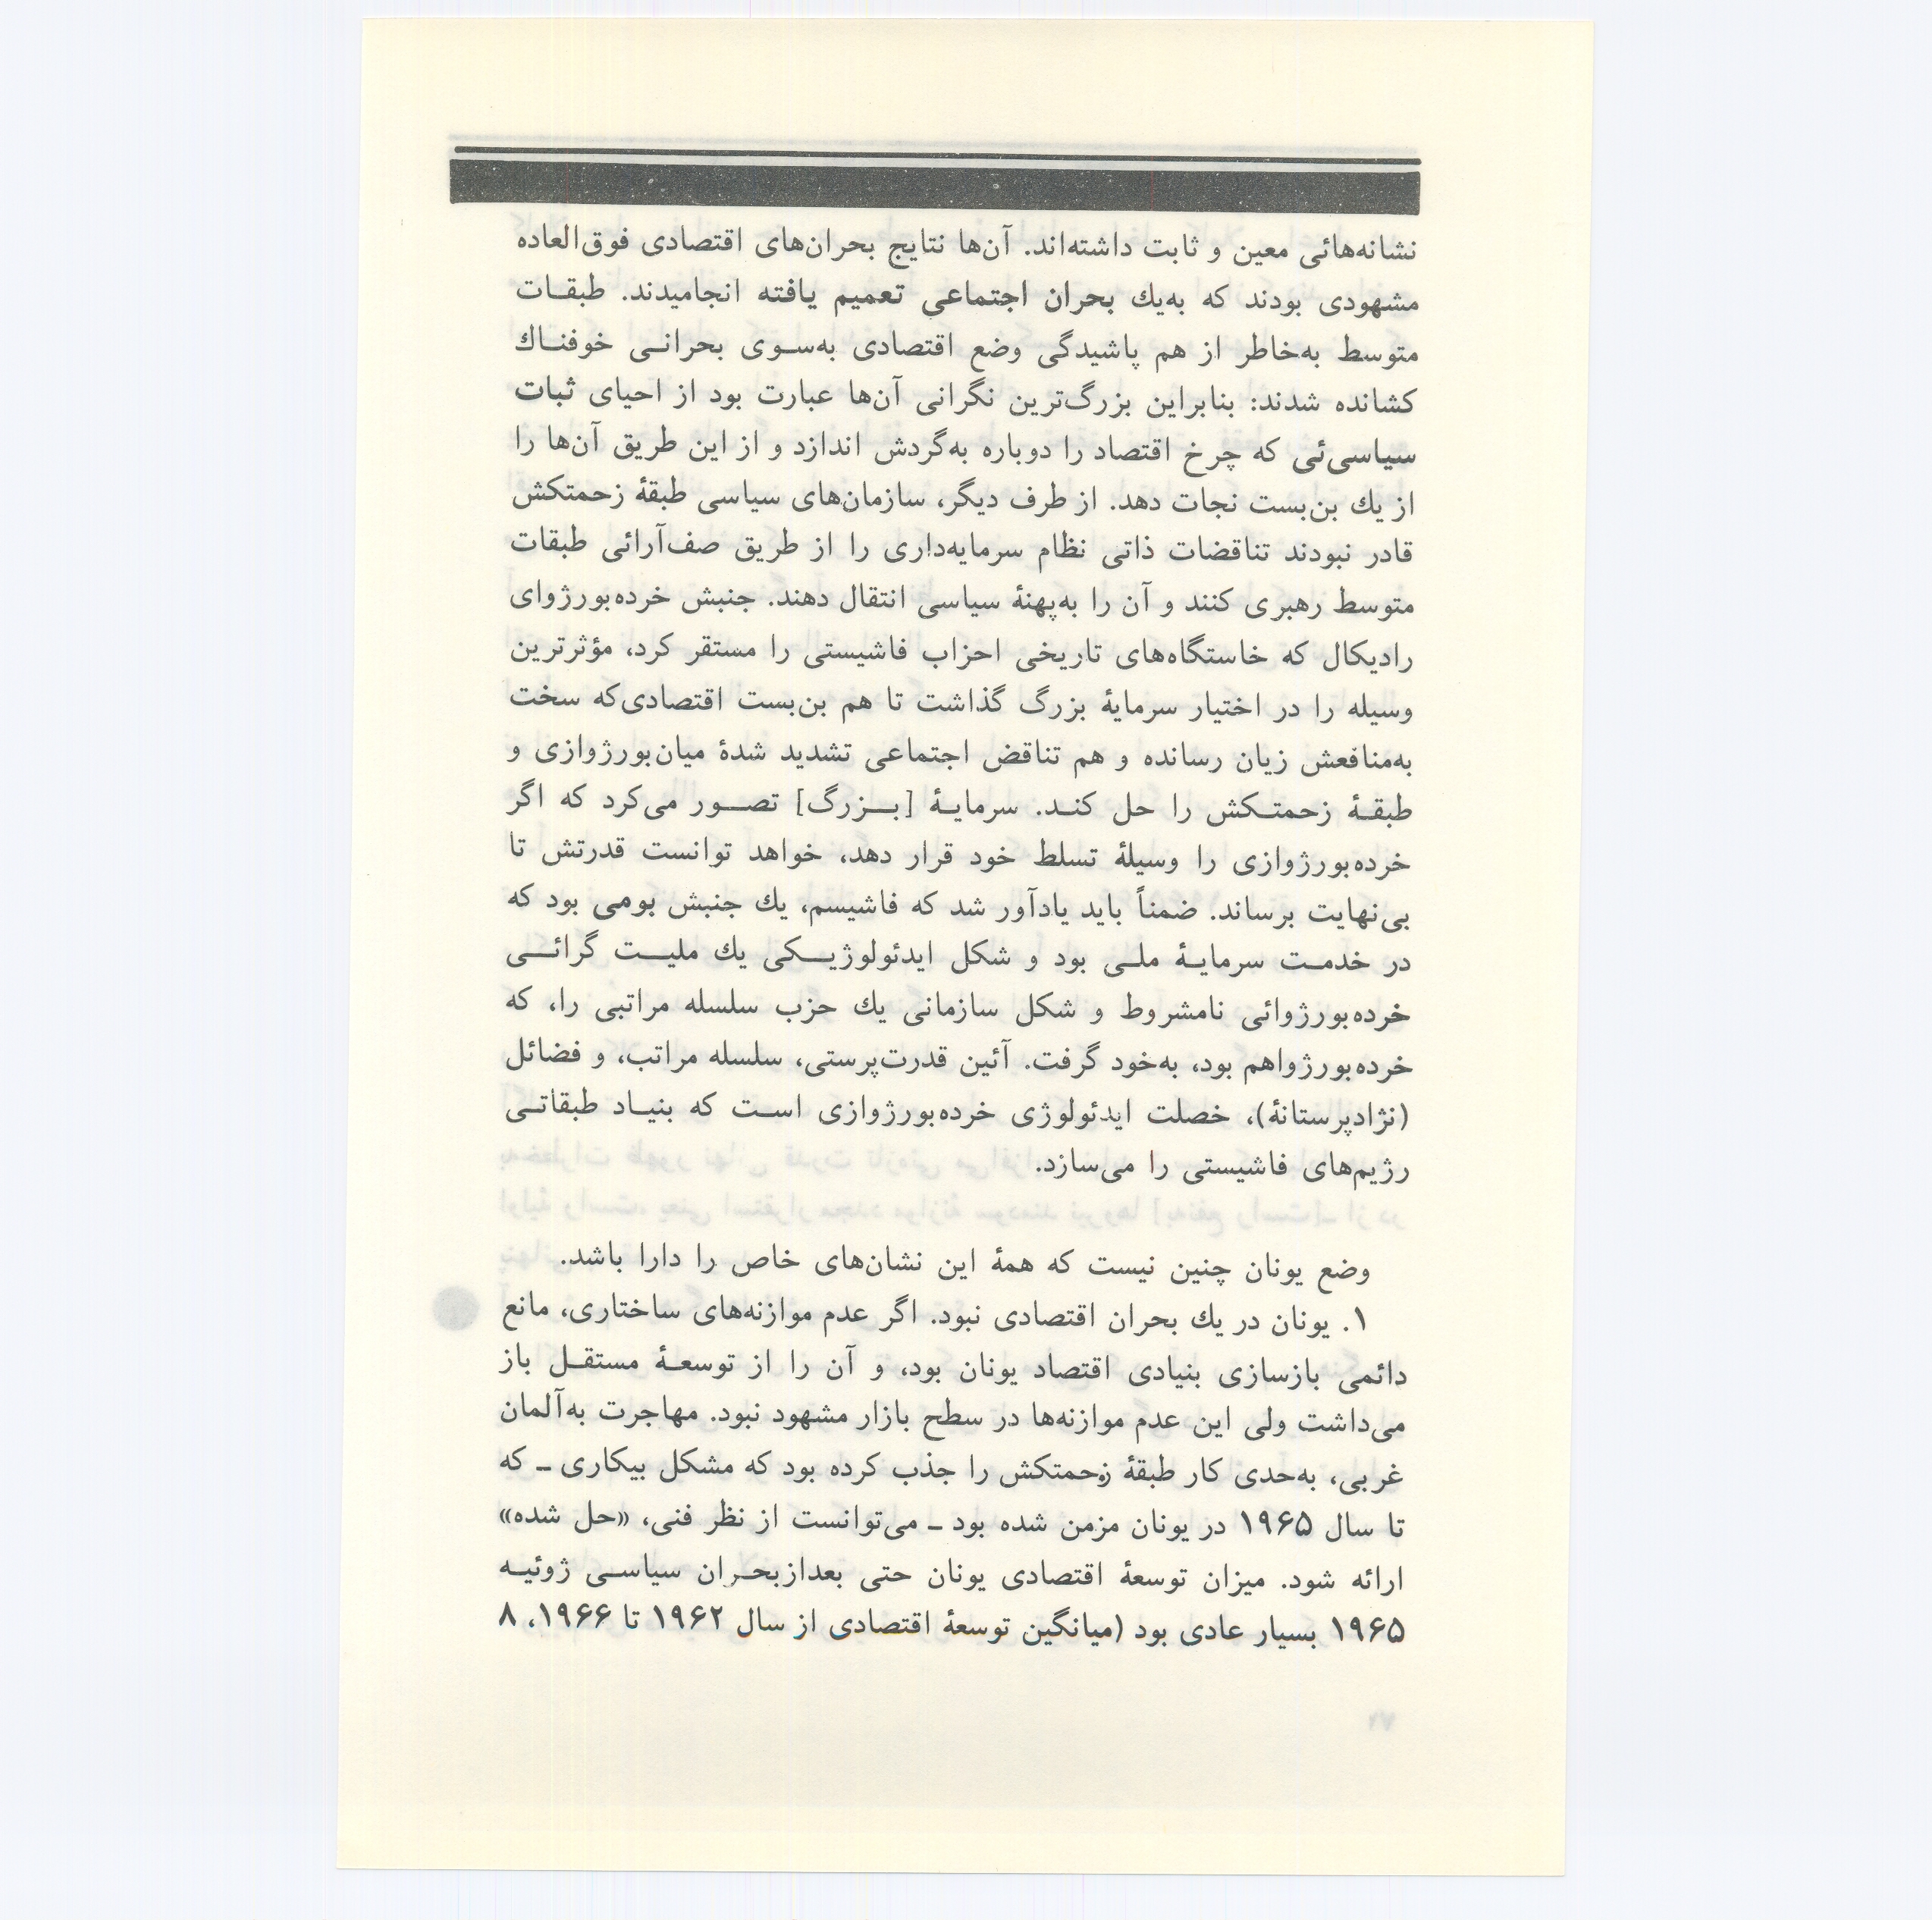 نشانه‌هائی معین و ثابت داشته‌اند. آن‌ها نتایج بحران‌های اقتصادی فوق‌العاده
مشهودی بودند که به‌یك بحران اجتماعی تعمیم یافته انجامیدند. طبقـات
متوسط به‌خاطر از هم پاشیدگی وضع اقتصادی به‌سـوی بحرانـی خوفنـاك
کشانده شدند: بنابراین بزرگ‌ترین نگرانی آن‌ها عبارت بود از احیای ثبات
سیاسی‌ئی که چرخ اقتصاد را دوباره به‌گردش اندازد و از این طریق آن‌ها را
از یك بن‌بست نجات دهد. از طرف دیگر، سازمان‌های سیاسی طبقهٔ زحمتکش
قادر نبودند تناقضات ذاتی نظام سرمایه‌داری را از طریق صف‌آرائی طبقات
متوسط رهبری کنند و آن را به‌پهنهٔ سیاسی انتقال دهند. جنبش خرده‌بورژوای
رادیکال که خاستگاه‌های تاریخی احزاب فاشیستی را مستقر کرد، مؤثرترین
وسیله را در اختیار سرمایهٔ بزرگ گذاشت تا هم بن‌بست اقتصادی‌که سخت
به‌منافعش زیان رسانده و هم تناقض اجتماعی تشدید شدهٔ میان‌بورژوازی و
طبقـهٔ زحمتـکش را حل کنـد. سرمایـهٔ [بــزرگ] تصــور می‌کرد که اگر
خرده‌بورژوازی را وسیلهٔ تسلط خود قرار دهد، خواهد توانست قدرتش تا
بی‌نهایت برساند. ضمناً باید یادآور شد که فاشیسم، یك جنبش بومی بود که
در خدمـت سرمایـهٔ ملـی بود و شکل ایدئولوژیــکی یك ملیــت گرائــی
خرده‌بورژوائی نامشروط و شکل سازمانی یك حزب سلسله مراتبی را، که
خرده‌بورژواهم بود، به‌خود گرفت. آئین قدرت‌پرستی، سلسله مراتب، و فضائل
(نژادپرستانهٔ)، خصلت ایدئولوژی خرده‌بورژوازی اسـت که بنیـاد طبقاتـی
رژیم‌های فاشیستی را می‌سازد.
وضع یونان چنین نیست که همهٔ این نشان‌های خاص را دارا باشد.
۱. یونان در یك بحران اقتصادی نبود. اگر عدم موازنه‌های ساختاری، مانع
دائمی بازسازی بنیادی اقتصاد یونان بود، و آن را از توسعـهٔ مستقـل باز
می‌داشت ولی این عدم موازنه‌ها در سطح بازار مشهود نبود. مهاجرت به‌آلمان
غربی، به‌حدی کار طبقهٔ زحمتکش را جذب کرده بود که مشکل بیکاری ـ که
تا سال ۱۹۶۵ در یونان مزمن شده بود ـ می‌توانست از نظر فنی، «حل شده»
ارائه شود. میزان توسعهٔ اقتصادی یونان حتی بعدازبحـران سیاسـی ژوئیـه
۱۹۶۵ بسیار عادی بود (میانگین توسعهٔ اقتصادی از سال ۱۹۶۲ تا ۱۹۶۶، ۸